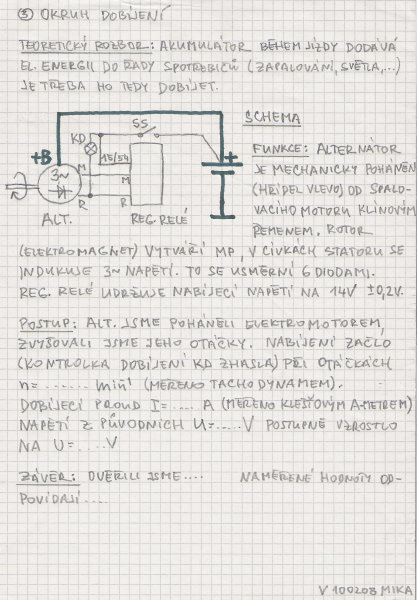 ③ OKRUH DOBÍJENÍ
TEORETICKÝ ROZBOR: AKUMULÁTOR BĚHEM JÍZDY DODÁVÁ
EL. ENERGII DO ŘADY SPOTŘEBIČŮ (ZAPALOVÁNÍ, SVĚTLA,...)
JE TŘEBA HO TEDY DOBÍJET.
SCHEMA
SS
KD
+B
15/54
+
3~
M
M
R
R
ALT.
REG. RELÉ
FUNKCE: ALTERNÁTOR
JE MECHANICKY POHÁNĚN
(HŘÍDEL VLEVO) OD SPALO-
VACÍHO MOTORU KLÍNOVÝM
ŘEMENEM. ROTOR
(ELEKTROMAGNET) VYTVÁŘÍ MP, V CÍVKÁCH STATORU SE
INDUKUJE 3~ NAPĚTÍ. TO SE USMĚRNÍ 6 DIODAMI.
REG. RELÉ UDRŽUJE NABÍJECÍ NAPĚTÍ NA 14V ±0,2V.
POSTUP: ALT. JSME POHÁNĚLI ELEKTROMOTOREM,
ZVYŠOVALI JSME JEHO OTÁČKY. NABÍJENÍ ZAČLO
(KONTROLKA DOBÍJENÍ KD ZHASLA) PŘI OTÁČKÁCH
n=....... min⁻¹ (MĚŘENO TACHODYNAMEM).
DOBÍJECÍ PROUD I=.... A (MĚŘENO KLEŠŤOVÝM A-METREM)
NAPĚTÍ Z PŮVODNÍCH U=....V POSTUPNĚ VZROSTLO
NA U=....V
ZÁVĚR: OVĚŘILI JSME.... NAMĚŘENÉ HODNOTY OD-
POVÍDAJÍ....
V 100208 MIKA